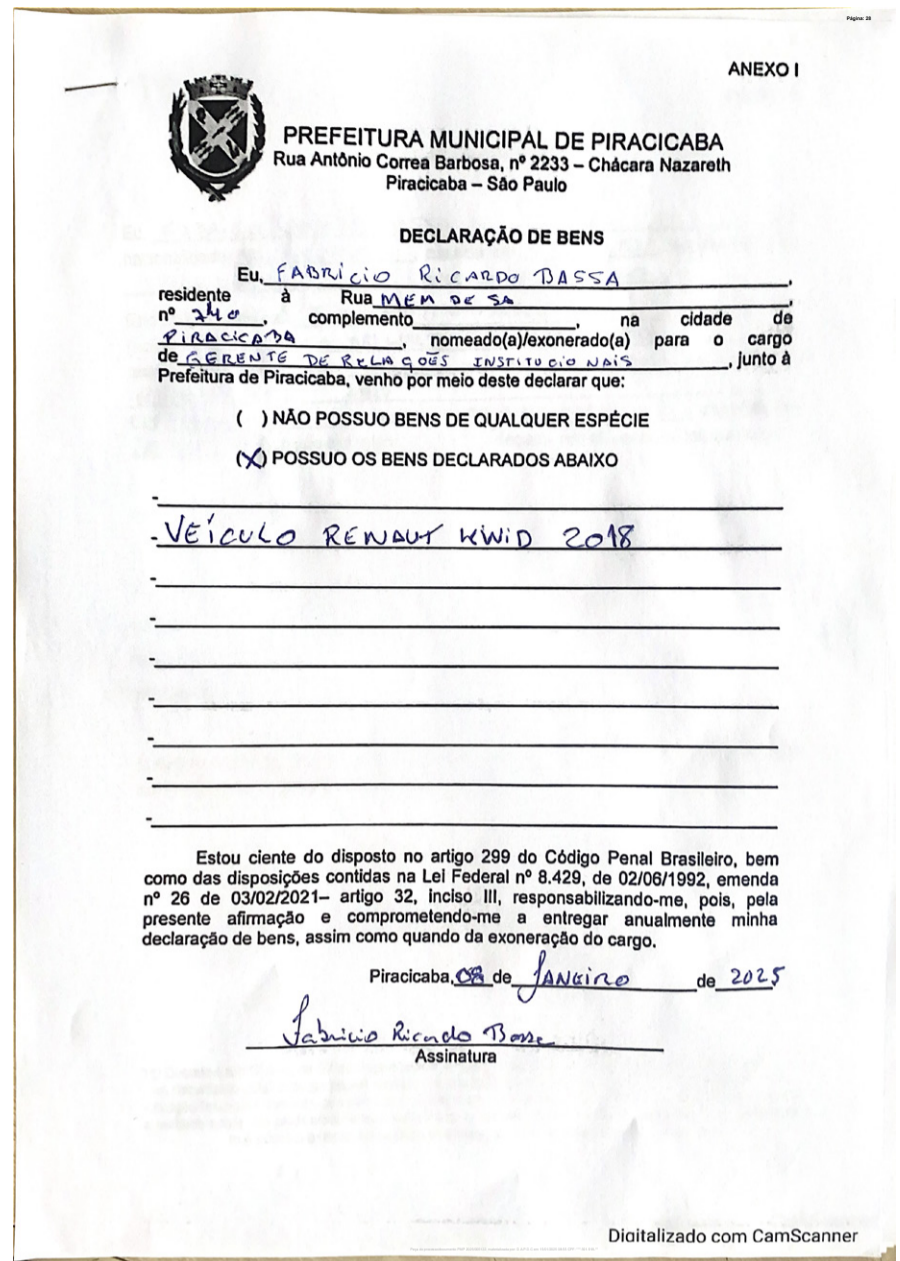 Página: 28
ANEXO I
PREFEITURA MUNICIPAL DE PIRACICABA
Rua Antônio Correa Barbosa, nº 2233 – Chácara Nazareth
Piracicaba – São Paulo
DECLARAÇÃO DE BENS
Eu, FABRICIO RICARDO BASSA,
residente à Rua MEM DE SA,
nº 740, complemento, na cidade de
PIRACICABA, nomeado(a)/exonerado(a) para o cargo
de GERENTE DE RELAÇÕES INSTITUCIONAIS, junto à
Prefeitura de Piracicaba, venho por meio deste declarar que:
( ) NÃO POSSUO BENS DE QUALQUER ESPÉCIE
(X) POSSUO OS BENS DECLARADOS ABAIXO
-
- VEÍCULO RENAUT KWID 2018
-
-
-
-
-
-
-
Estou ciente do disposto no artigo 299 do Código Penal Brasileiro, bem
como das disposições contidas na Lei Federal nº 8.429, de 02/06/1992, emenda
nº 26 de 03/02/2021– artigo 32, inciso III, responsabilizando-me, pois, pela
presente afirmação e comprometendo-me a entregar anualmente minha
declaração de bens, assim como quando da exoneração do cargo.
Piracicaba, 08 de JANEIRO de 2025
Fabricio Ricardo Bassa
Assinatura
Digitalizado com CamScanner